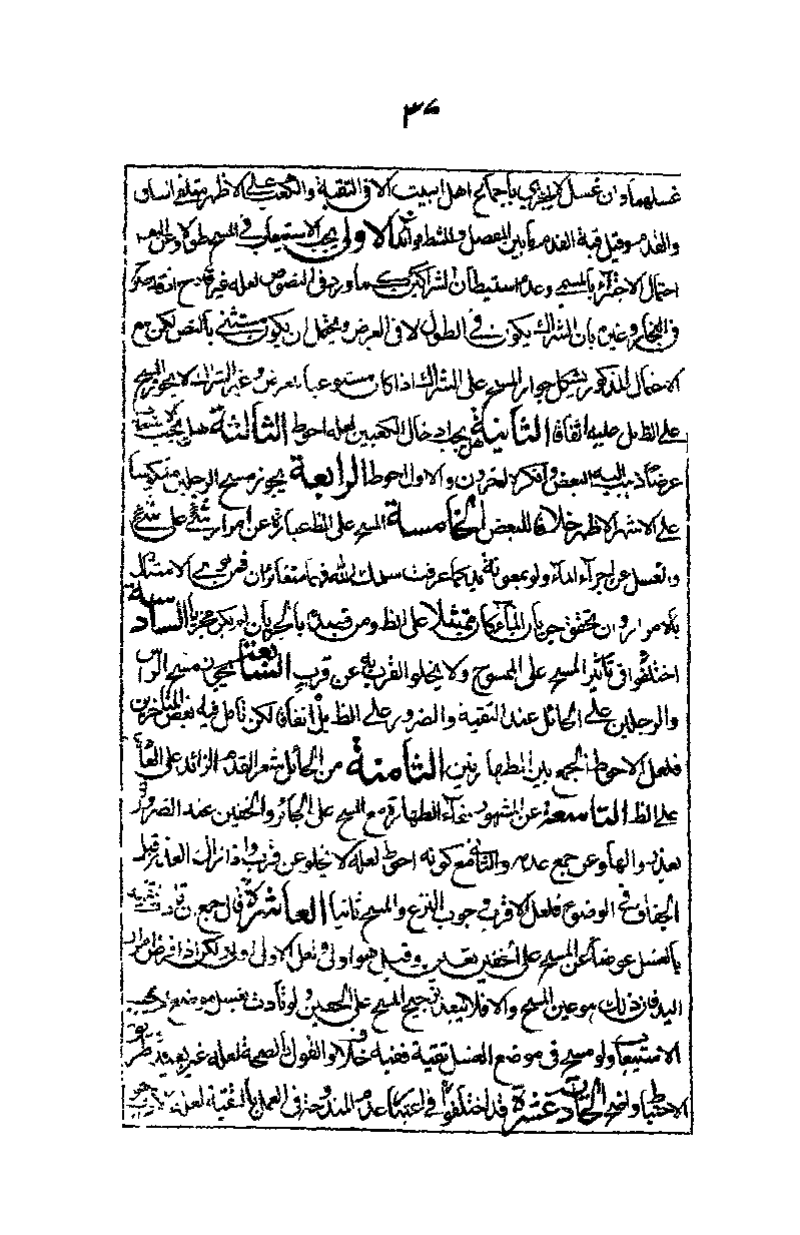 ٣٧
غسلهما وان غسل لا يجزي باجماع اهل البيت الا في التقية والكعب على الاظهر ملتقى الساق
والقدم وقيل قبة القدم ما بين المفصل والمشط فوائد الاولى يجب الاستيعاب في المسح طولا وعلى
احتمال الاجتزاء بالمسمى وعدم استبطان الشراكين كما ورد في النصوص لعله غير قادح
في النجار وغيره بان الشراك يكون في الطول لا في العرض ويحتمل ان يكون مستثنى بالنص لكن مع
الاحتمال المذكور يشكل جواز المسح على الشراك اذا كان مستوعبا بعرض وغير الشراك لا يجوز المسح
على الظاهر عليه اتفاقا الثانية هل يجب ادخال الكعبين لعله احوط الثالثة هل يجب الاستيعاب
عرضا ذهب اليه البعض وانكره اخرون والاول احوط الرابعة يجوز مسح الرجلين منكوسا
على الاشهر الاظهر خلافا للبعض الخامسة المسح على الظ عبارة عن امرار شئ على شئ
والغسل عن اجراء الماء ولو بمعونة يد كما عرفت سلمك الله فهما متغائران فمن نوى الامتثال
بالامرار وان تحقق جريان الماء كان ممتثلا على الظ ومن قصد بالجريان لم يكن مجزيا السادسة
اختلفوا في تأثير المسح على الممسوح ولا يخلو القرب به عن قرب السابعة يجوز مسح الراس
والرجلين على الحائل عند التقية والضرورة على الظ بل اتفاقا لكن تأمل فيه بعض المتاخرين
فلعل الاحوط الجمع بين الطهارتين الثامنة من الحائل شعر القدم الزائد على العادة
على الظ التاسعة عن المشهور بقاء الطهارة مع المسح على الجبائر والخفين عند الضرورة
بعد زوالها وعن جمع عدمه والثاني مع كونه احوط لعله لا يخلو عن قرب واذا زال العذر قبل
الجفاف في الوضوء فلعل الاقرب وجوب النزع والمسح ثانيا العاشرة قال جمع ان تادت التقية
بالغسل عوضا عن المسح على الخفين تعين وقيل هو اولى ولعل الاولى اولى لكن اذا فرض امرار
اليد فان ذلك هو عين المسح والا فلا يبعد ترجيح المسح على الخفين ولو تأدت بغسل موضع المسح يجب
الاستيعاب ولو مسح في موضع الغسل تقية ففيه خلاف والقول بالصحة لعله غير بعيد وطريق
الاحتياط واضح الحادية عشرة قد اختلفوا في اعتبار عدم المندوحة في العمل بالتقية لعله